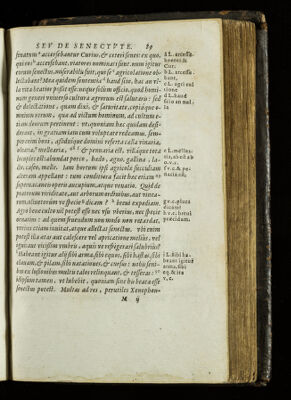 SEV DE SENECTVTE. 89
senatum accersebantur Curius, & ceteri senes: ex quo,
qui eos accersebant, viatores nominati sunt. num igitur
eorum senectus miserabilis fuit, qui se agricolatione ob-
lectabant? Mea quidem sententia haud scio, an nul-
la vita beatior possit esse. neque solum officio, quod homi-
num generi vniuerso cultura agrorum est salutaris: sed
& delectatione, quam dixi, & saturitate, copiaque om-
nium rerum, quæ ad victum hominum, ad cultum e-
tiam deorum pertinent: vt, quoniam hæc quidam desi-
derant, in gratiam iam cum voluptate redeamus. sem-
per enim boni, assiduique domini referta cella vinaria,
olearia, mellearia, & penuaria est. villaque tota
locuples est: abundat porco, hædo, agno, gallina, la-
cte, caseo, melle. Iam hortum ipsi agricolæ succidiam
alteram appellant: tum conditiora facit hæc etiam
superuacanei operis aucupium, atque venatio. Quid de
pratorum viriditate, aut arborum ordinibus, aut vinea-
rum, oliuetorum ve specie dicam? breui expediam.
Agro bene culto nil potest esse nec vsu vberius, nec specie
ornatius: ad quem fruendum non modo non retardat,
verum etiam inuitat, atque allectat senectus. vbi enim
potest illa ætas aut calescere vel apricatione melius, vel
igni, aut vicissim vmbris, aquis ve refrigerari salubrius?
Habeant igitur alii sibi arma, sibi equos, sibi hastas, sibi
clauam, & pilam, sibi natationes, & cursus: nobis seni-
bus ex lusionibus multis talos relinquant, & tesseras:
id ipsum tamen, vt lubebit, quoniam sine his beata esse
senectus potest. Multas ad res, perutiles Xenophon-
M ij